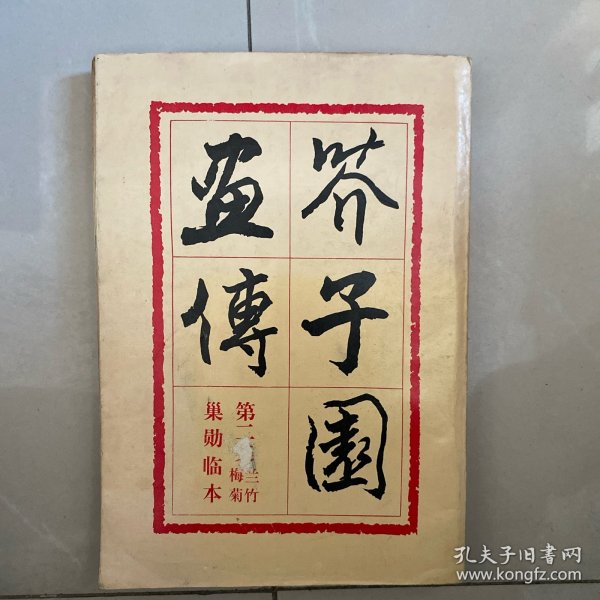 芥子園
畫傳
第二
兰竹
梅菊
巢勋临本
孔夫子旧书网
www.kongfz.com